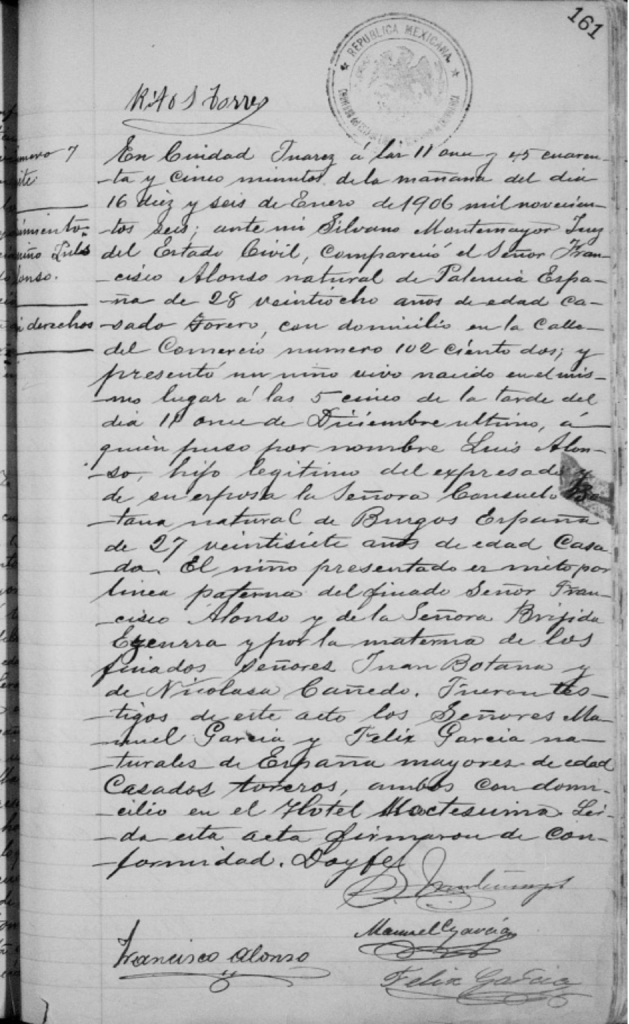 161
REPUBLICA MEXICANA
Rito S Torres
En Ciudad Juarez á las 11 once y 45 cuaren-
-ta y cinco minutos de la mañana del dia
16 diez y seis de Enero de 1906 mil novecien-
-tos seis; ante mi Silvano Montemayor Juez
del Estado Civil, compareció el Señor Fran-
-cisco Alonso natural de Palencia Espa-
-ña de 28 veintiocho años de edad Ca-
-sado torero, con domicilio en la Calle
del Comercio numero 102 ciento dos; y
presentó un niño vivo nacido en el mis-
-mo lugar á las 5 cinco de la tarde del
dia 11 once de Diciembre ultimo, á
quien puso por nombre Luis Alon-
-so, hijo legitimo del expresado y
de su esposa la Señora Consuelo Bo-
-tana natural de Burgos España
de 27 veintisiete años de edad Casa-
-da. El niño presentado es nieto por
linea paterna del finado Señor Fran-
-cisco Alonso y de la Señora Brijida
Ezcurra y por la materna de los
finados señores Juan Botana y
de Nicolasa Cañedo. Fueron tes-
-tigos de este acto los Señores Ma-
-nuel Garcia y Felix Garcia na-
-turales de España mayores de edad
Casados toreros, ambos con domi-
-cilio en el Hotel Moctesuma. Lei-
-da esta acta firmaron de con-
-formidad. Doy fe
Manuel Garcia
Francisco Alonso
Felix Garcia